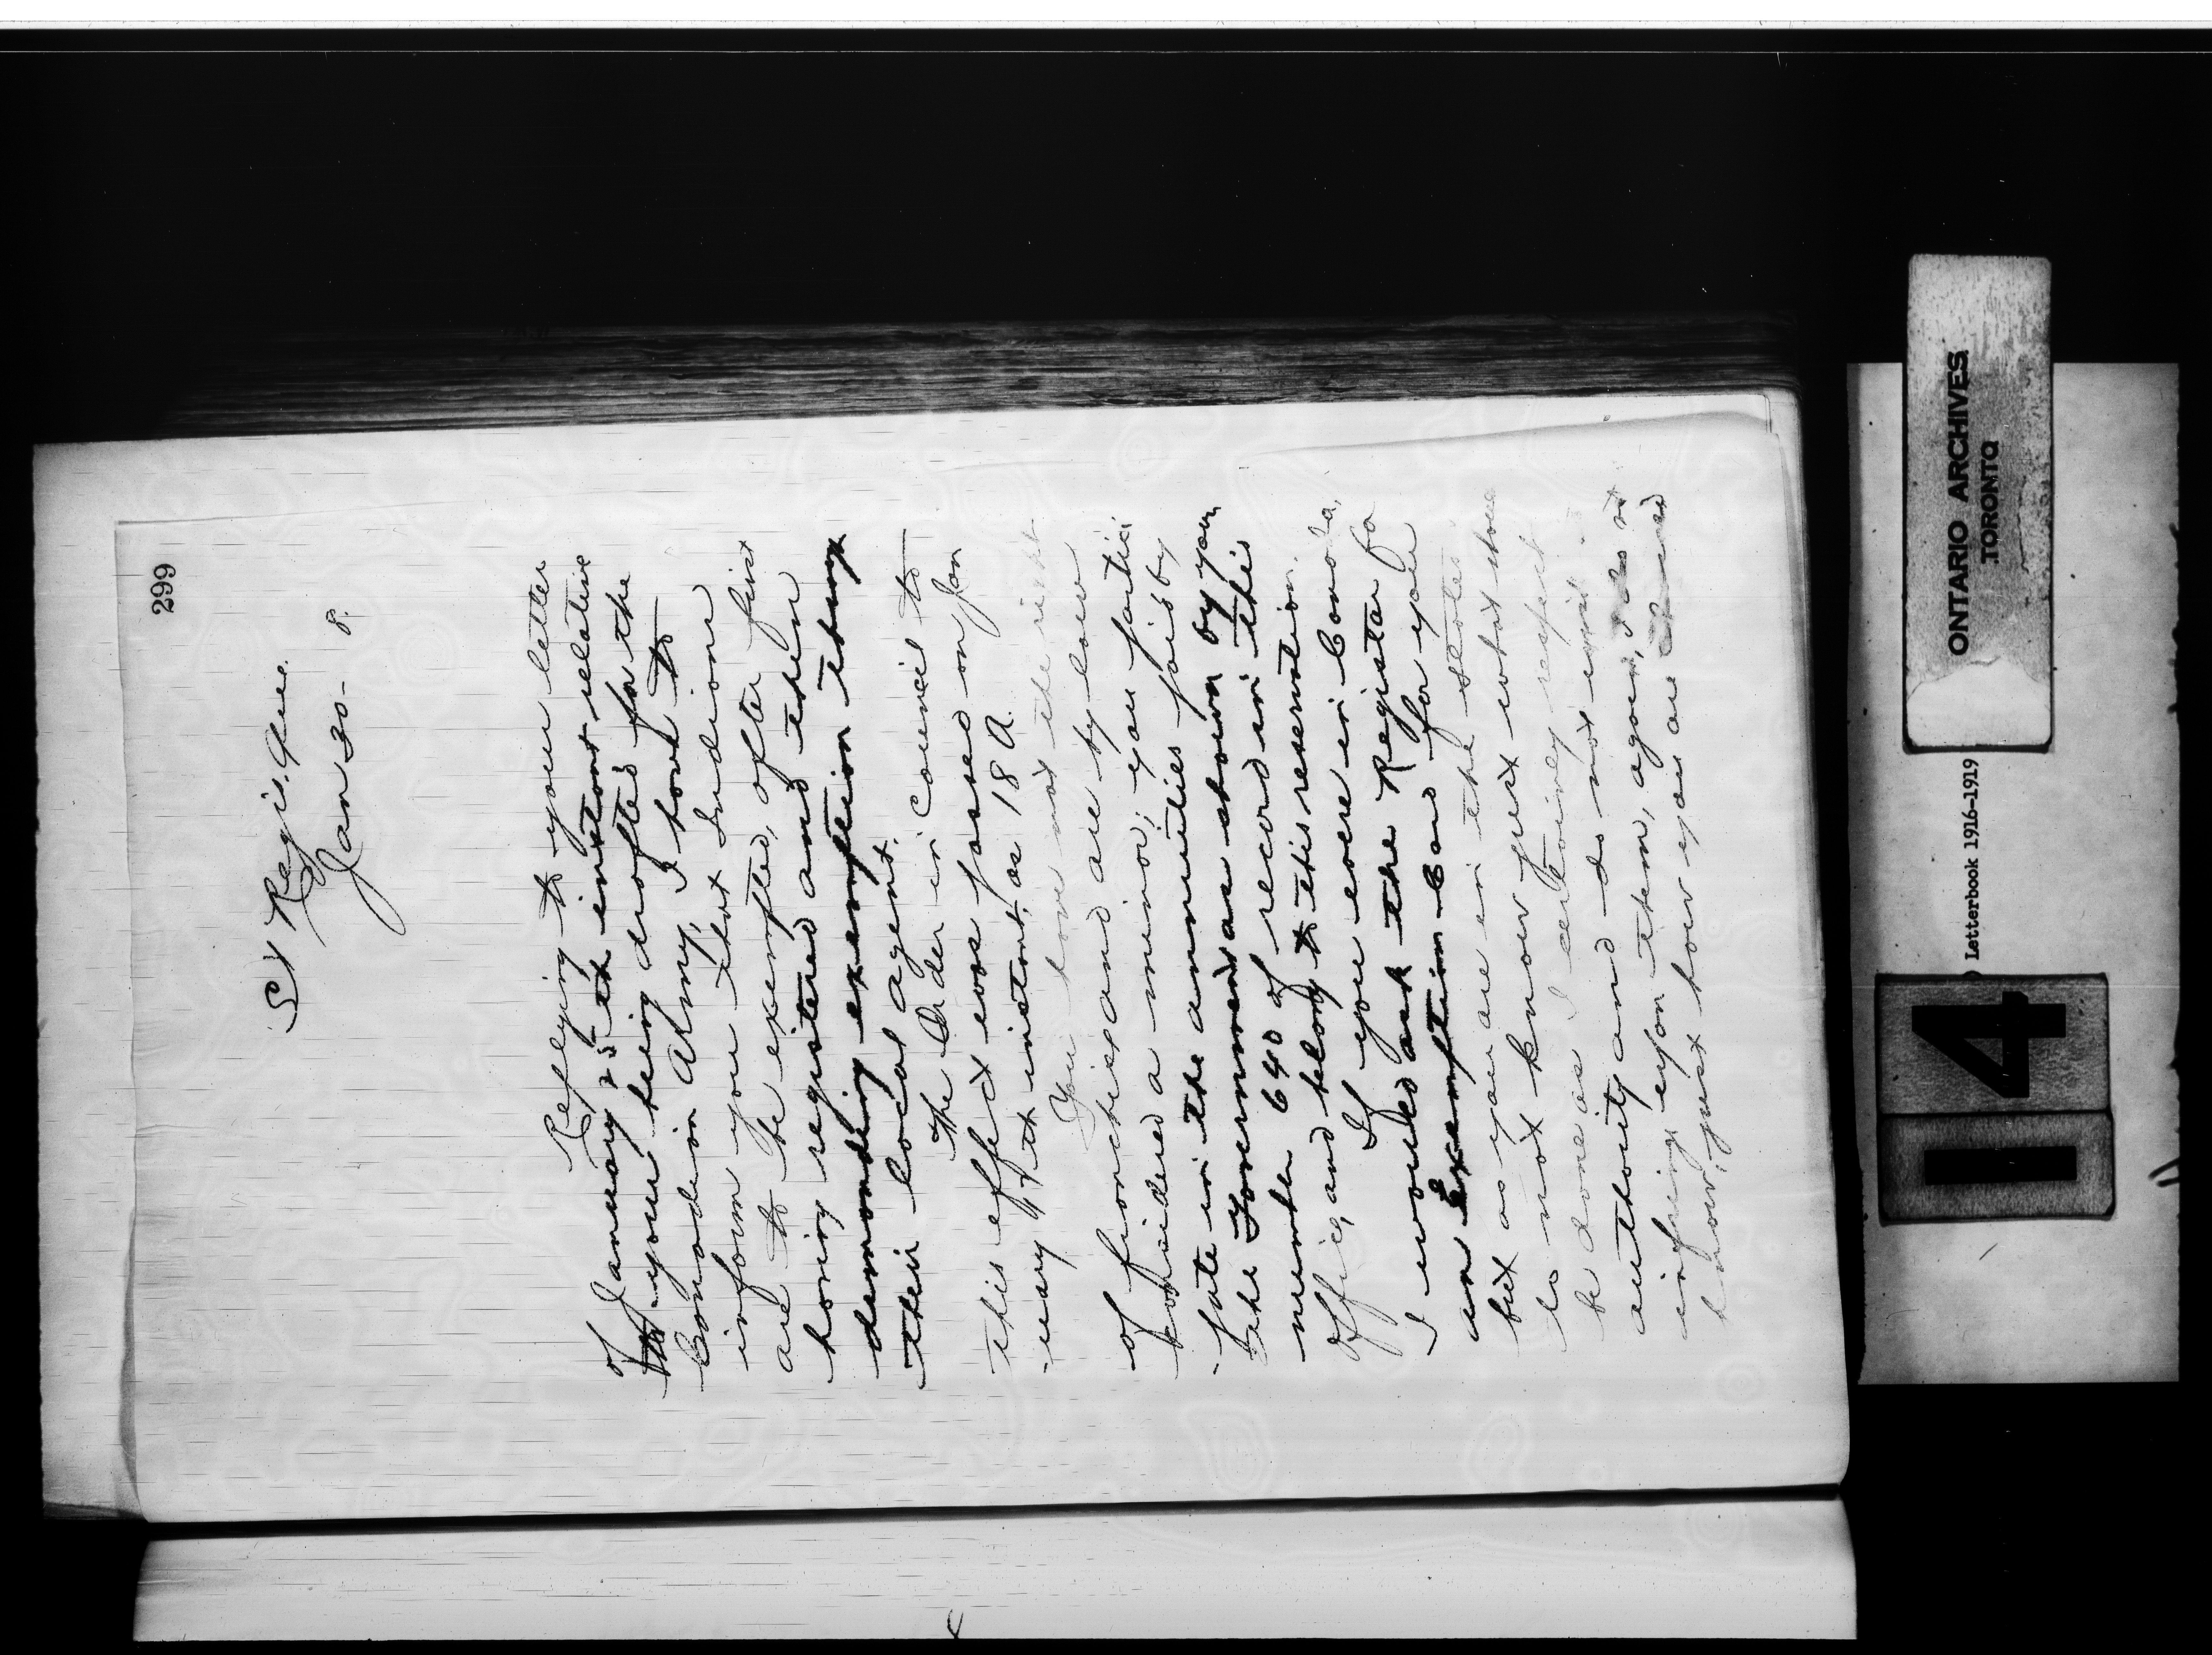 299
St Regis. Que.
Jan 30 - 8.
Replying to your letter
of January 25th instant relative
to your being drafted for the
Canadian Army, I have to
inform you that Indians
are to be exempted, after first
having registered and then
demanding exemption through
their local agent.
The Order in Council to
this effect was passed on Jan
-uary 17th instant, as 18 A.
You have not the right
of franchise and are by law
considered a minor; you partici
-pate in the annuities paid by
the Government as shown by your
number 640 of record in this
office, and belong to this reservation.
If you were in Canada,
I would ask the Registrar for
an Exemption Card for you
but as you are in the states
do not know just what should
be done as I certainly respect
authority and do not wish to
infringe upon them, again,
know, just how you are
ONTARIO ARCHIVES
TORONTO
Letterbook 1916-1919
14